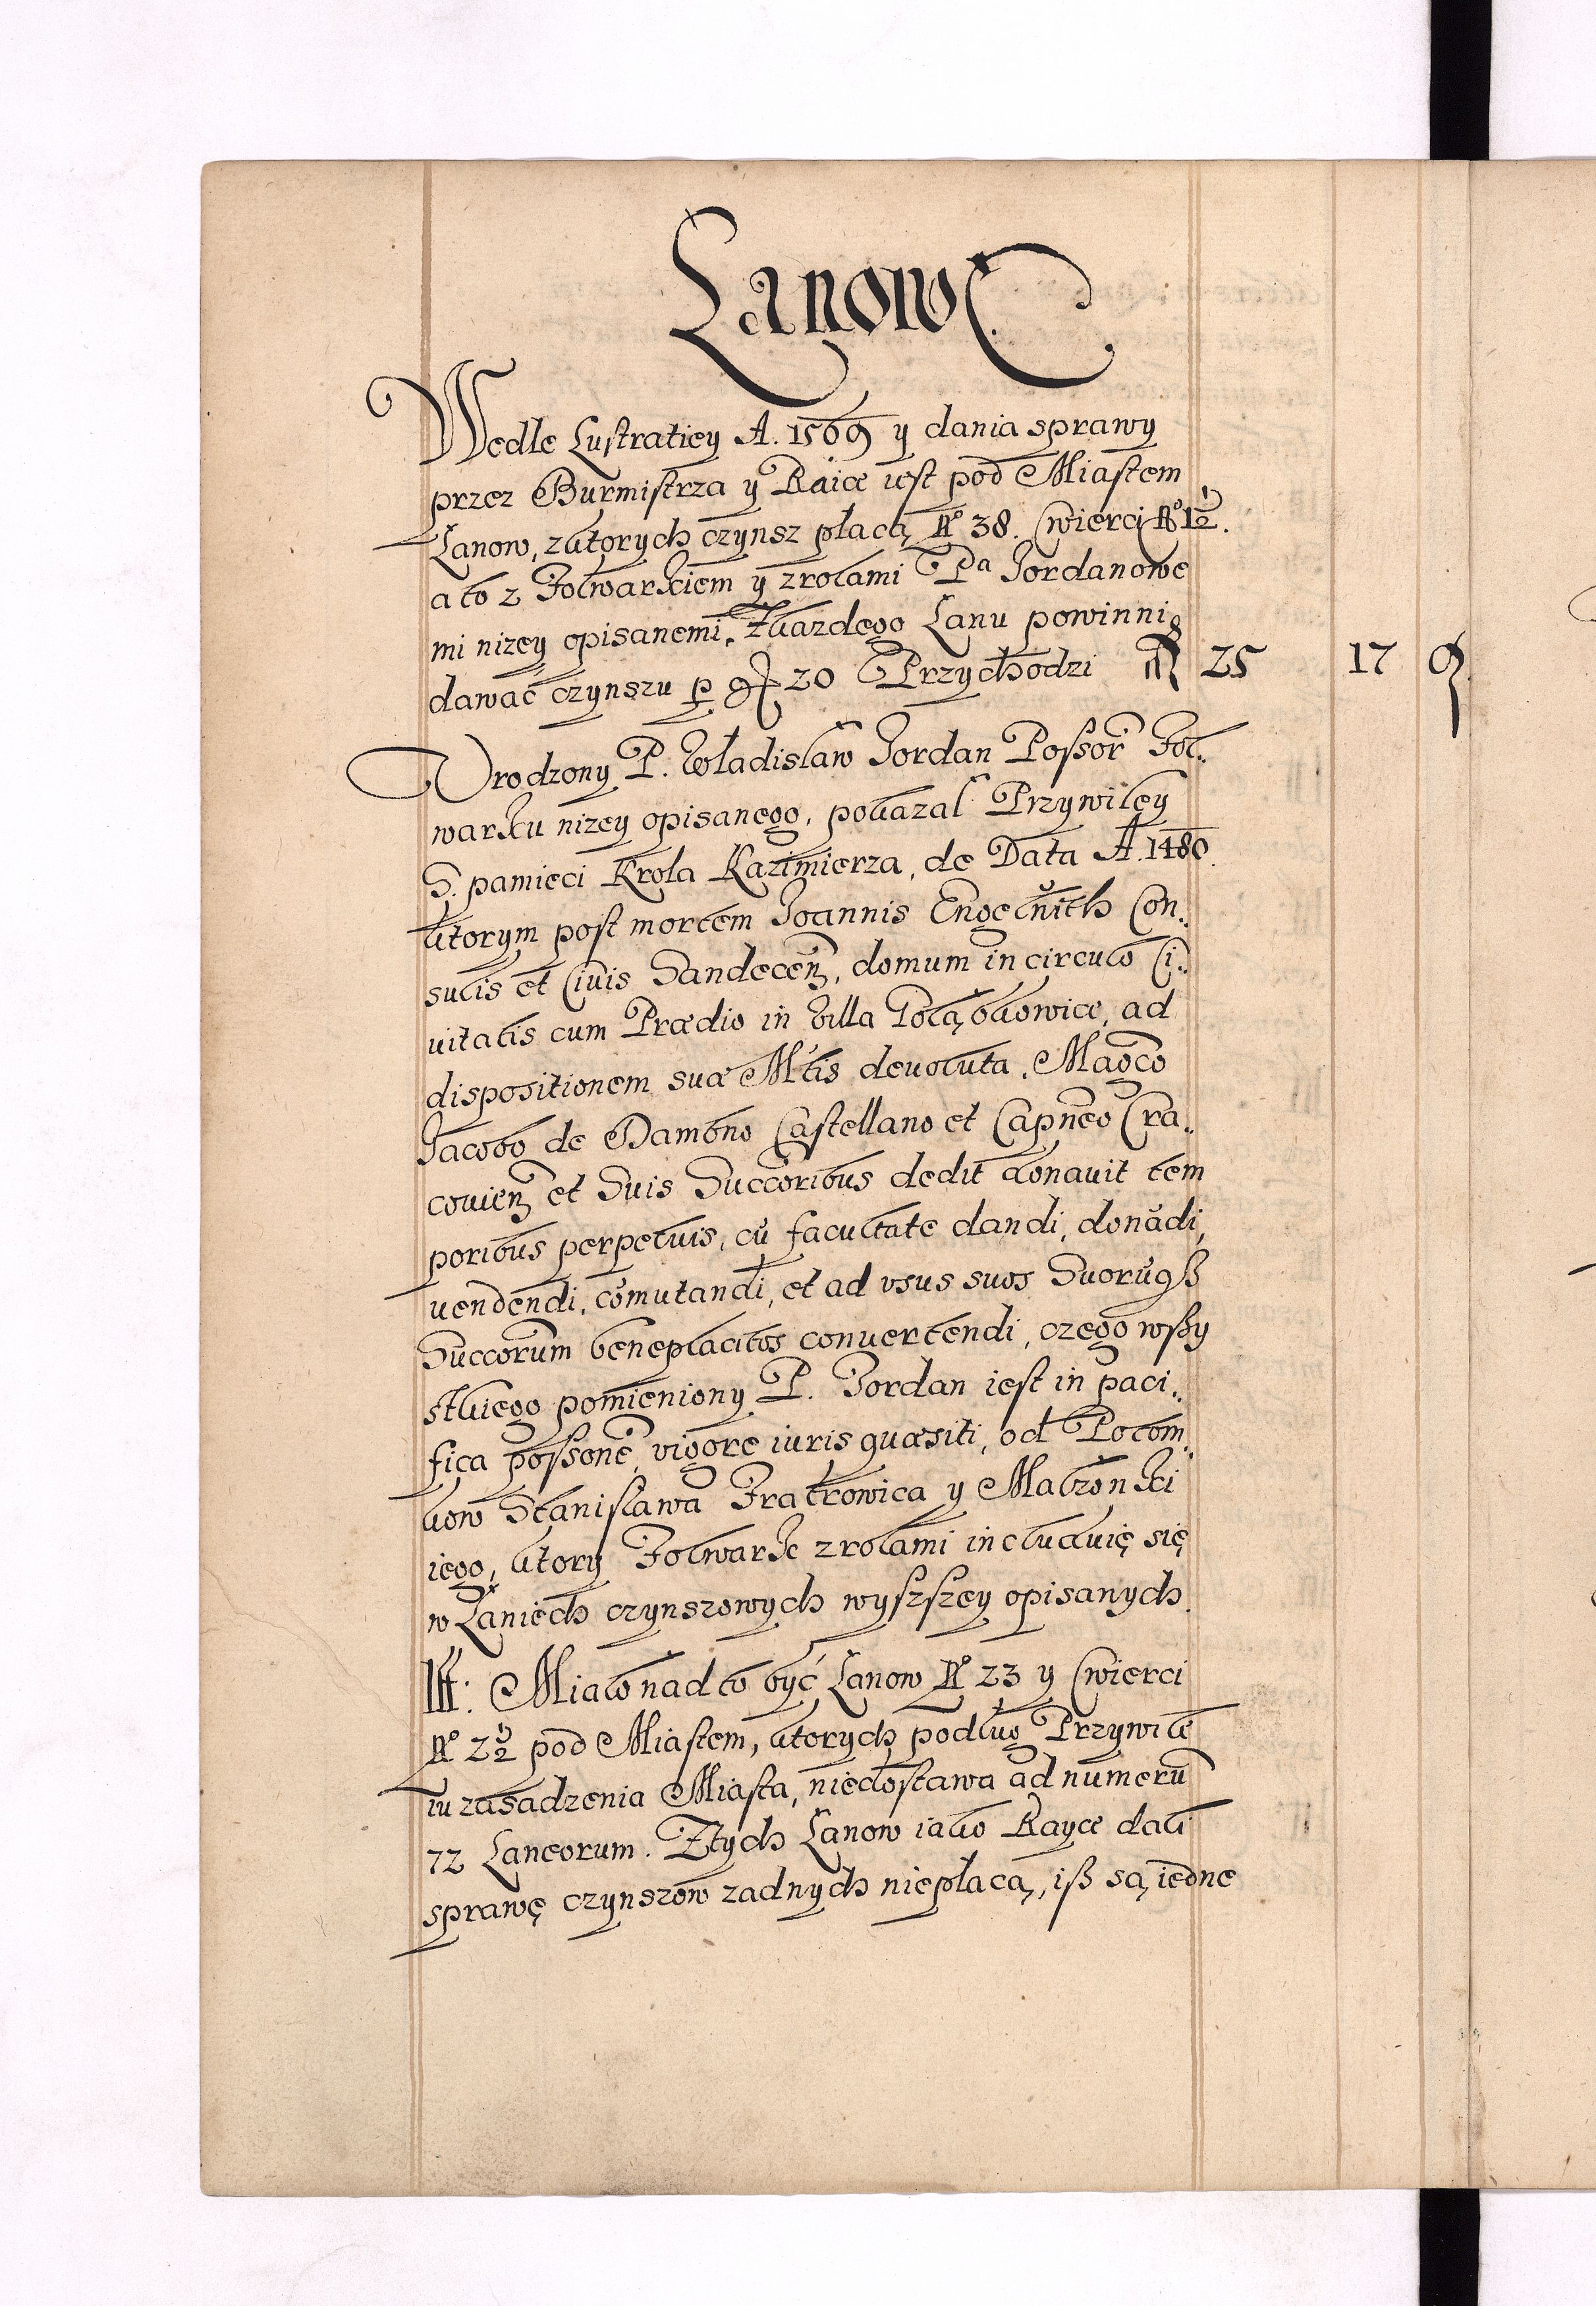 Lanow
Wedle Lustratiey A. 1569 y dania sprawy
przez Burmistrza y Raice iest pod Miastem
Lanow, z ktorych czynsz płacą No 38. Cwierci No 1½.
a to z Folwarkiem y z rolami Pa Jordanowe
mi nizey opisanemi. Z kazdego Lanu powinni
dawać czynszu p gr 20 Przychodzi fl 25 17 9
Urodzony P. Władisław Jordan Poßor Fol..
warku nizey opisanego, pokazal Przywiley
S. pamieci Krola Kazimierza, de Data A. 1480.
ktorym post mortem Joannis Con..
sulis et Ciuis Sandecen, domum in circulo Ci..
uitatis cum Prædio in Villa Gołąbkowice, ad
dispositionem suæ Mtis deuoluta. Magco
Jacobo de Dambno Castellano et Capneo Cra..
couien et Suis Succoribus dedit donauit tem
poribus perpetuis, cu facultate dandi, donadi,
uendendi, comutandi, et ad vsus suos Suoruq
Succorum beneplacitos conuertendi, czego wßy
stkiego pomieniony P. Jordan iest in paci..
fica poßone, vigore iuris quæsiti, od Potom..
kow Stanisława Fratrowica y Malzonki
iego, ktory Folwark z rolami includuię się
w Laniech czynszowych wyszszey opisanych.
Itt: Miało nad to być Lanow No 23 y Cwierci
No 2½ pod Miastem, ktorych podług Przywile
iu zasadzenia Miasta, niedostawa ad numeru
72 Laneorum. Z tych Lanow iako Rayce dali
sprawę czynszow zadnych niepłacą, iß są iedne